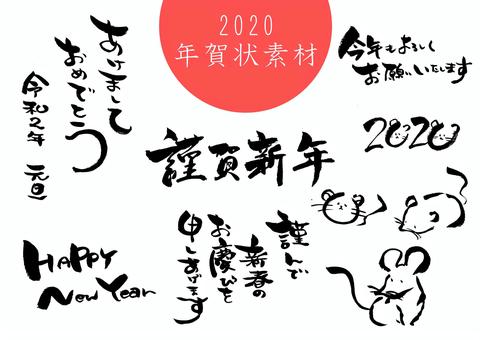 2020
年賀状素材
あけまして
おめでとう
令和2年 元旦
今年もよろしく
お願いいたします
2020
謹賀新年
謹んで
新春の
お慶びを
申しあげます
HAPPY
New Year